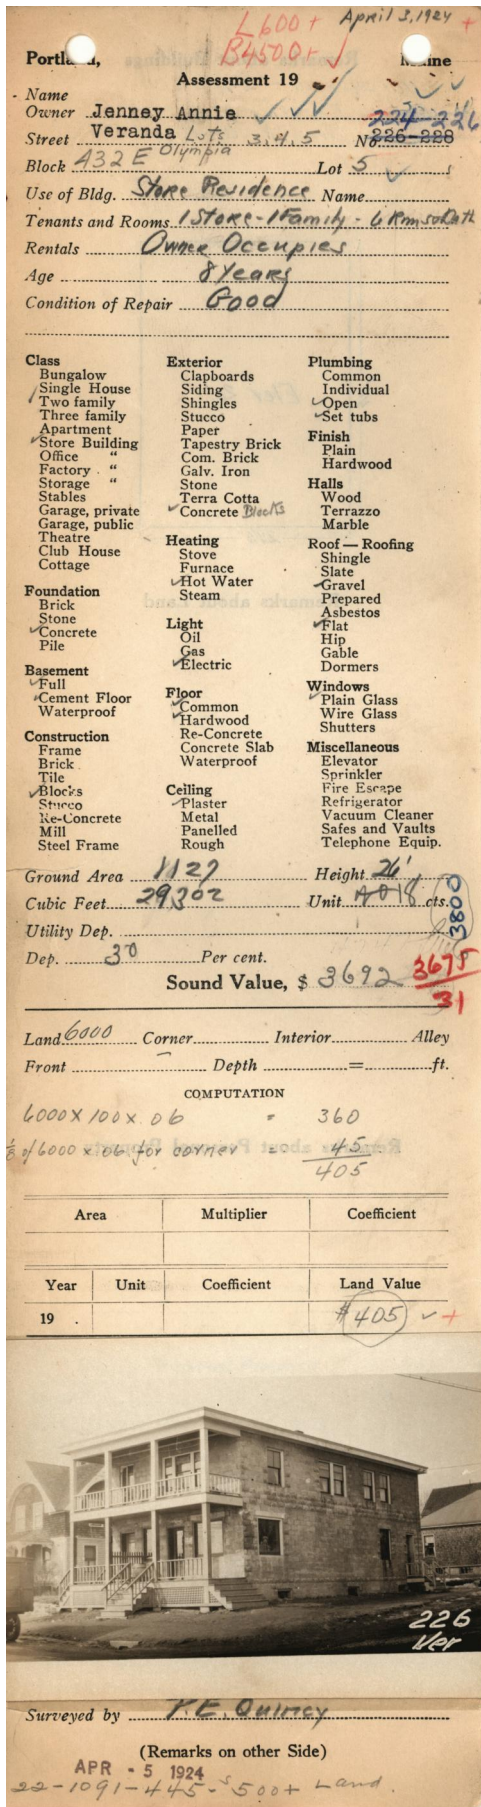 L 600 + April 3, 1924 +
B 4500 +
Portland, Maine
Assessment 19
Name
Owner Jenney Annie 224-226
Street Veranda Lots 3.4.5 No 226-228
Olympia
Block 432 E Lot 5 s
Use of Bldg. Store Residence Name
Tenants and Rooms 1 Store - 1 Family - 6 Rms & Bath
Rentals Owner Occupies
Age 8 Years
Condition of Repair Good
Class
Bungalow
Single House
Two family
Three family
Apartment
Store Building
Office "
Factory "
Storage "
Stables
Garage, private
Garage, public
Theatre
Club House
Cottage
Foundation
Brick
Stone
Concrete
Pile
Basement
Full
Cement Floor
Waterproof
Construction
Frame
Brick
Tile
Blocks
Stucco
Re-Concrete
Mill
Steel Frame
Exterior
Clapboards
Siding
Shingles
Stucco
Paper
Tapestry Brick
Com. Brick
Galv. Iron
Stone
Terra Cotta
Concrete Blocks
Heating
Stove
Furnace
Hot Water
Steam
Light
Oil
Gas
Electric
Floor
Common
Hardwood
Re-Concrete
Concrete Slab
Waterproof
Ceiling
Plaster
Metal
Panelled
Rough
Plumbing
Common
Individual
Open
Set tubs
Finish
Plain
Hardwood
Halls
Wood
Terrazzo
Marble
Roof — Roofing
Shingle
Slate
Gravel
Prepared
Asbestos
Flat
Hip
Gable
Dormers
Windows
Plain Glass
Wire Glass
Shutters
Miscellaneous
Elevator
Sprinkler
Fire Escape
Refrigerator
Vacuum Cleaner
Safes and Vaults
Telephone Equip.
Ground Area 1127 Height 26'
Cubic Feet 29302 Unit 18 cts.
3800
Utility Dep.
Dep. 30 Per cent.
Sound Value, $ 3692 3675
31
Land 6000 Corner Interior Alley
Front Depth = ft.
COMPUTATION
6000 x 100 x .06 = 360
1/8 of 6000 x .06 for corner = 45
405
Area Multiplier Coefficient
Year Unit Coefficient Land Value
19 . $405 +
226
Ver
Surveyed by P. E. Quincy
(Remarks on other Side)
APR - 5 1924
22-1091-445-$500+ Land.